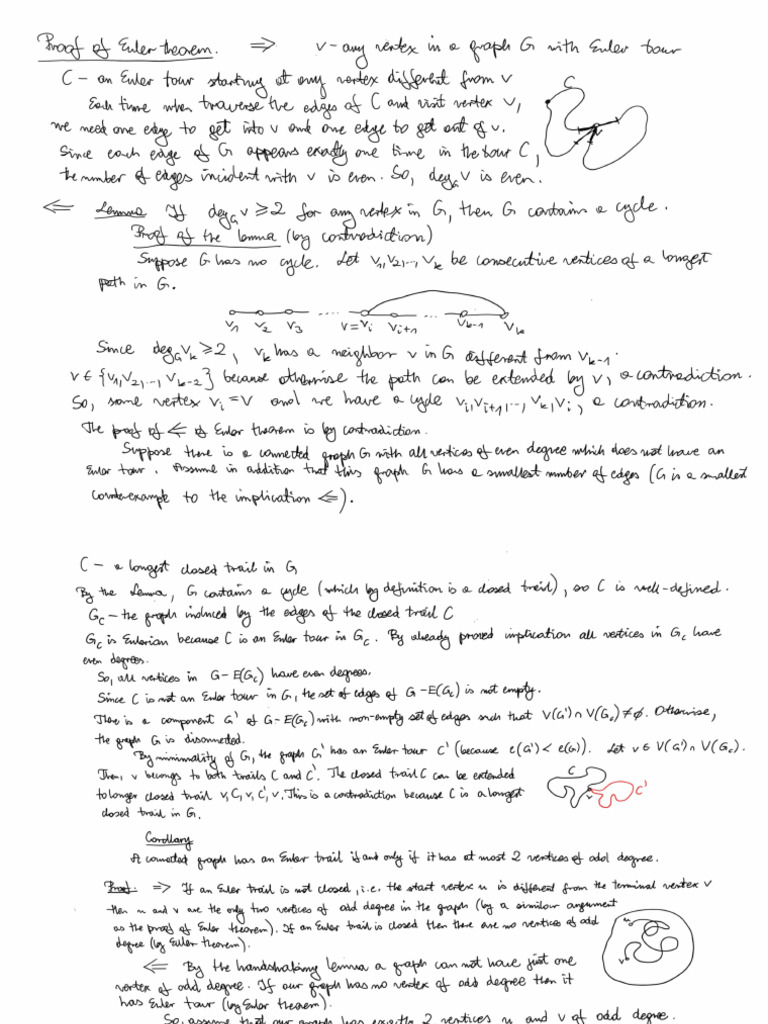 Proof of Euler theorem. ⇒ v - any vertex in a graph G with Euler tour
C - an Euler tour starting at any vertex different from v
Each time when traverse the edges of C and visit vertex v,
we need one edge to get into v and one edge to get out of v.
Since each edge of G appears exactly one time in the tour C,
the number of edges incident with v is even. So, deg_G v is even.
C
⇐ Lemma If deg_G v ≥ 2 for any vertex in G, then G contains a cycle.
Proof of the lemma (by contradiction)
Suppose G has no cycle. Let v₁, v₂, ..., v_k be consecutive vertices of a longest
path in G.
v₁ v₂ v₃ .... v=v_i v_{i+1} ... v_{k-1} v_k
Since deg_G v_k ≥ 2, v_k has a neighbor v in G different from v_{k-1}.
v ∈ {v₁, v₂, ..., v_{k-2}} because otherwise the path can be extended by v, a contradiction.
So, some vertex v_i = v and we have a cycle v_i, v_{i+1}, ..., v_k, v_i, a contradition.
The proof of ⇐ of Euler theorem is by contradiction.
Suppose there is a connected graph G with all vertices of even degree which does not have an
Euler tour. Assume in addition that this graph G has a smallest number of edges (G is a smallest
counterexample to the implication ⇐).
C - a longest closed trail in G
By the Lemma, G contains a cycle (which by definition is a closed trail), so C is well-defined.
G_C - the graph induced by the edges of the closed trail C
G_C is Eulerian because C is an Euler tour in G_C. By already proved implication all vertices in G_C have
even degrees.
So, all vertices in G - E(G_C) have even degrees.
Since C is not an Euler tour in G, the set of edges of G - E(G_C) is not empty.
There is a component G' of G - E(G_C) with non-empty set of edges such that V(G') ∩ V(G_C) ≠ ∅. Otherwise,
the graph G is disconnected.
By minimality of G, the graph G' has an Euler tour C' (because e(G') < e(G)). Let v ∈ V(G') ∩ V(G_C).
Then, v belongs to both trails C and C'. The closed trail C can be extended
to longer closed trail v, C, v, C', v. This is a contradiction because C is a longest
closed trail in G.
C v C'
Corollary
A connected graph has an Euler trail if and only if it has at most 2 vertices of odd degree.
Proof. ⇒ If an Euler trail is not closed, i.e. the start vertex u is different from the terminal vertex v
then u and v are the only two vertices of odd degree in the graph (by a similar argument
as the proof of Euler theorem). If an Euler trail is closed then there are no vertices of odd
degree (by Euler theorem).
u
v
⇐ By the handshaking lemma a graph can not have just one
vertex of odd degree. If our graph has no vertex of odd degree then it
has Euler tour (by Euler theorem).
So, assume that our graph has exactly 2 vertices u and v of odd degree.